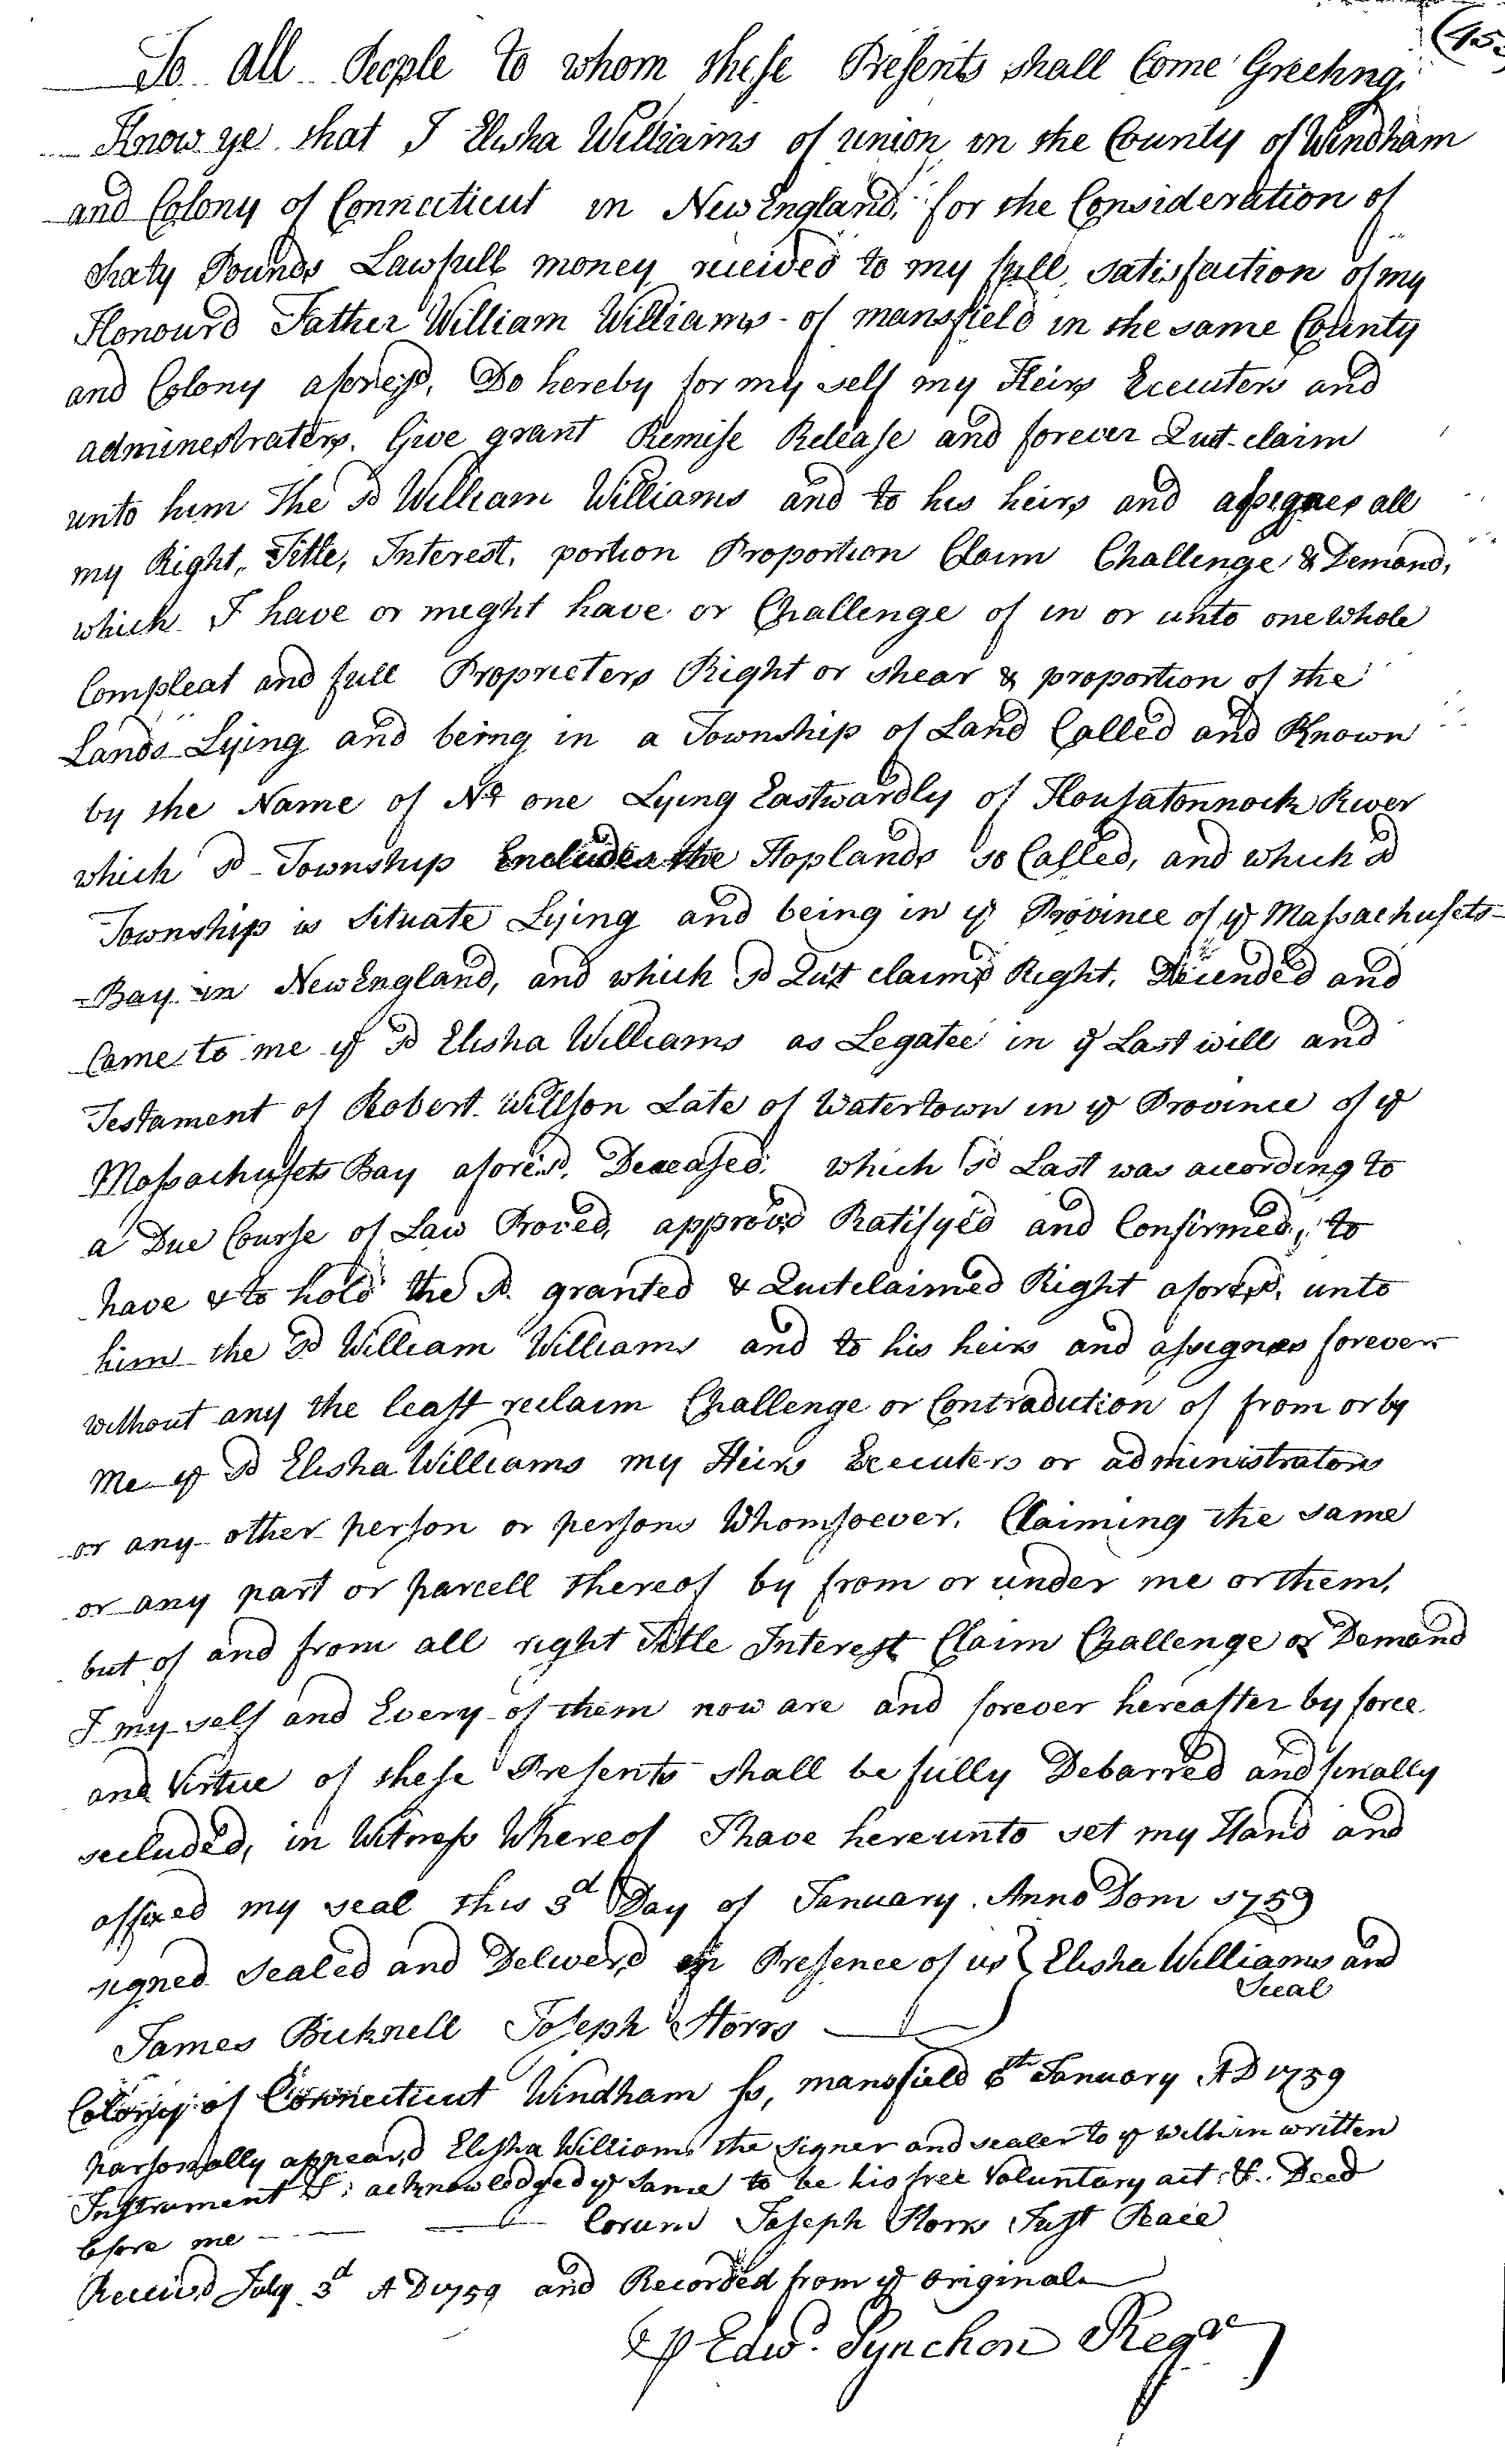 (453
To All People to whom these Presents shall Come Greeting,
Know ye that I Elisha Williams of union in the County of Windham
and Colony of Connecticut in New England, for the Consideration of
Sixty Pounds Lawfull money received to my full satisfaction of my
Honourd Father William Williams of mansfield in the same County
and Colony aforesd, Do hereby for my self my Heirs Executers and
adminestraters, Give grant Remise Release and forever Quit-claim
unto him The sd William Williams and to his heirs and assignes all
my Right, Title, Interest, portion Proportion Claim Challenge & Demand,
which I have or might have or Challenge of in or unto one whole
Compleat and full Proprieters Right or shear & proportion of the
Lands Lying and being in a Township of Land Called and Known
by the Name of No one Lying Eastwardly of Housatonnock River
which sd Township Includes the Hoplands so Called, and which sd
Township is Situate Lying and being in ye Province of ye Massachusets-
-Bay in New England, and which sd Quit claimd Right, Decended and
Came to me ye sd Elisha Williams as Legatee in ye Last will and
Testament of Robert Willson Late of Watertown in ye Province of ye
Massachusets Bay aforesd, Deceased, which sd Last was acording to
a Due Course of Law Proved, approvd Ratifyed and Confirmed, to
have & to hold the sd granted & Quitclaimed Right aforesd, unto
him the sd William Williams and to his heirs and assignes forever
without any the least reclaim Challenge or Contradiction of from or by
Me ye sd Elisha Williams my Heirs Executers or administrators
or any other person or persons Whomsoever, Claiming the same
or any part or parcell thereof by from or under me or them,
but of and from all right Title Interest Claim Challenge or Demand
I my self and Every of them now are and forever hereafter by force
and Virtue of these Presents shall be fully Debarred and finally
secluded, in Witness Whereof I have hereunto set my Hand and
affixed my seal this 3d Day of January Anno Dom 1759
signed sealed and Deliver,d in Presence of us } Elisha Williams and
Seal
James Bicknell Joseph Storrs
Colony of Connecticut Windham ss, mansfield 6th January AD 1759
parsonally appear,d Elisha Williams the signer and sealer to ye within written
Instrument &: acknowledged ye same to be his free Voluntary act & Deed
before me Corum Joseph Storrs Just Peace
Receivd July 3d AD 1759 and Recorded from ye original
⅌ Edwd. Pynchon Regr